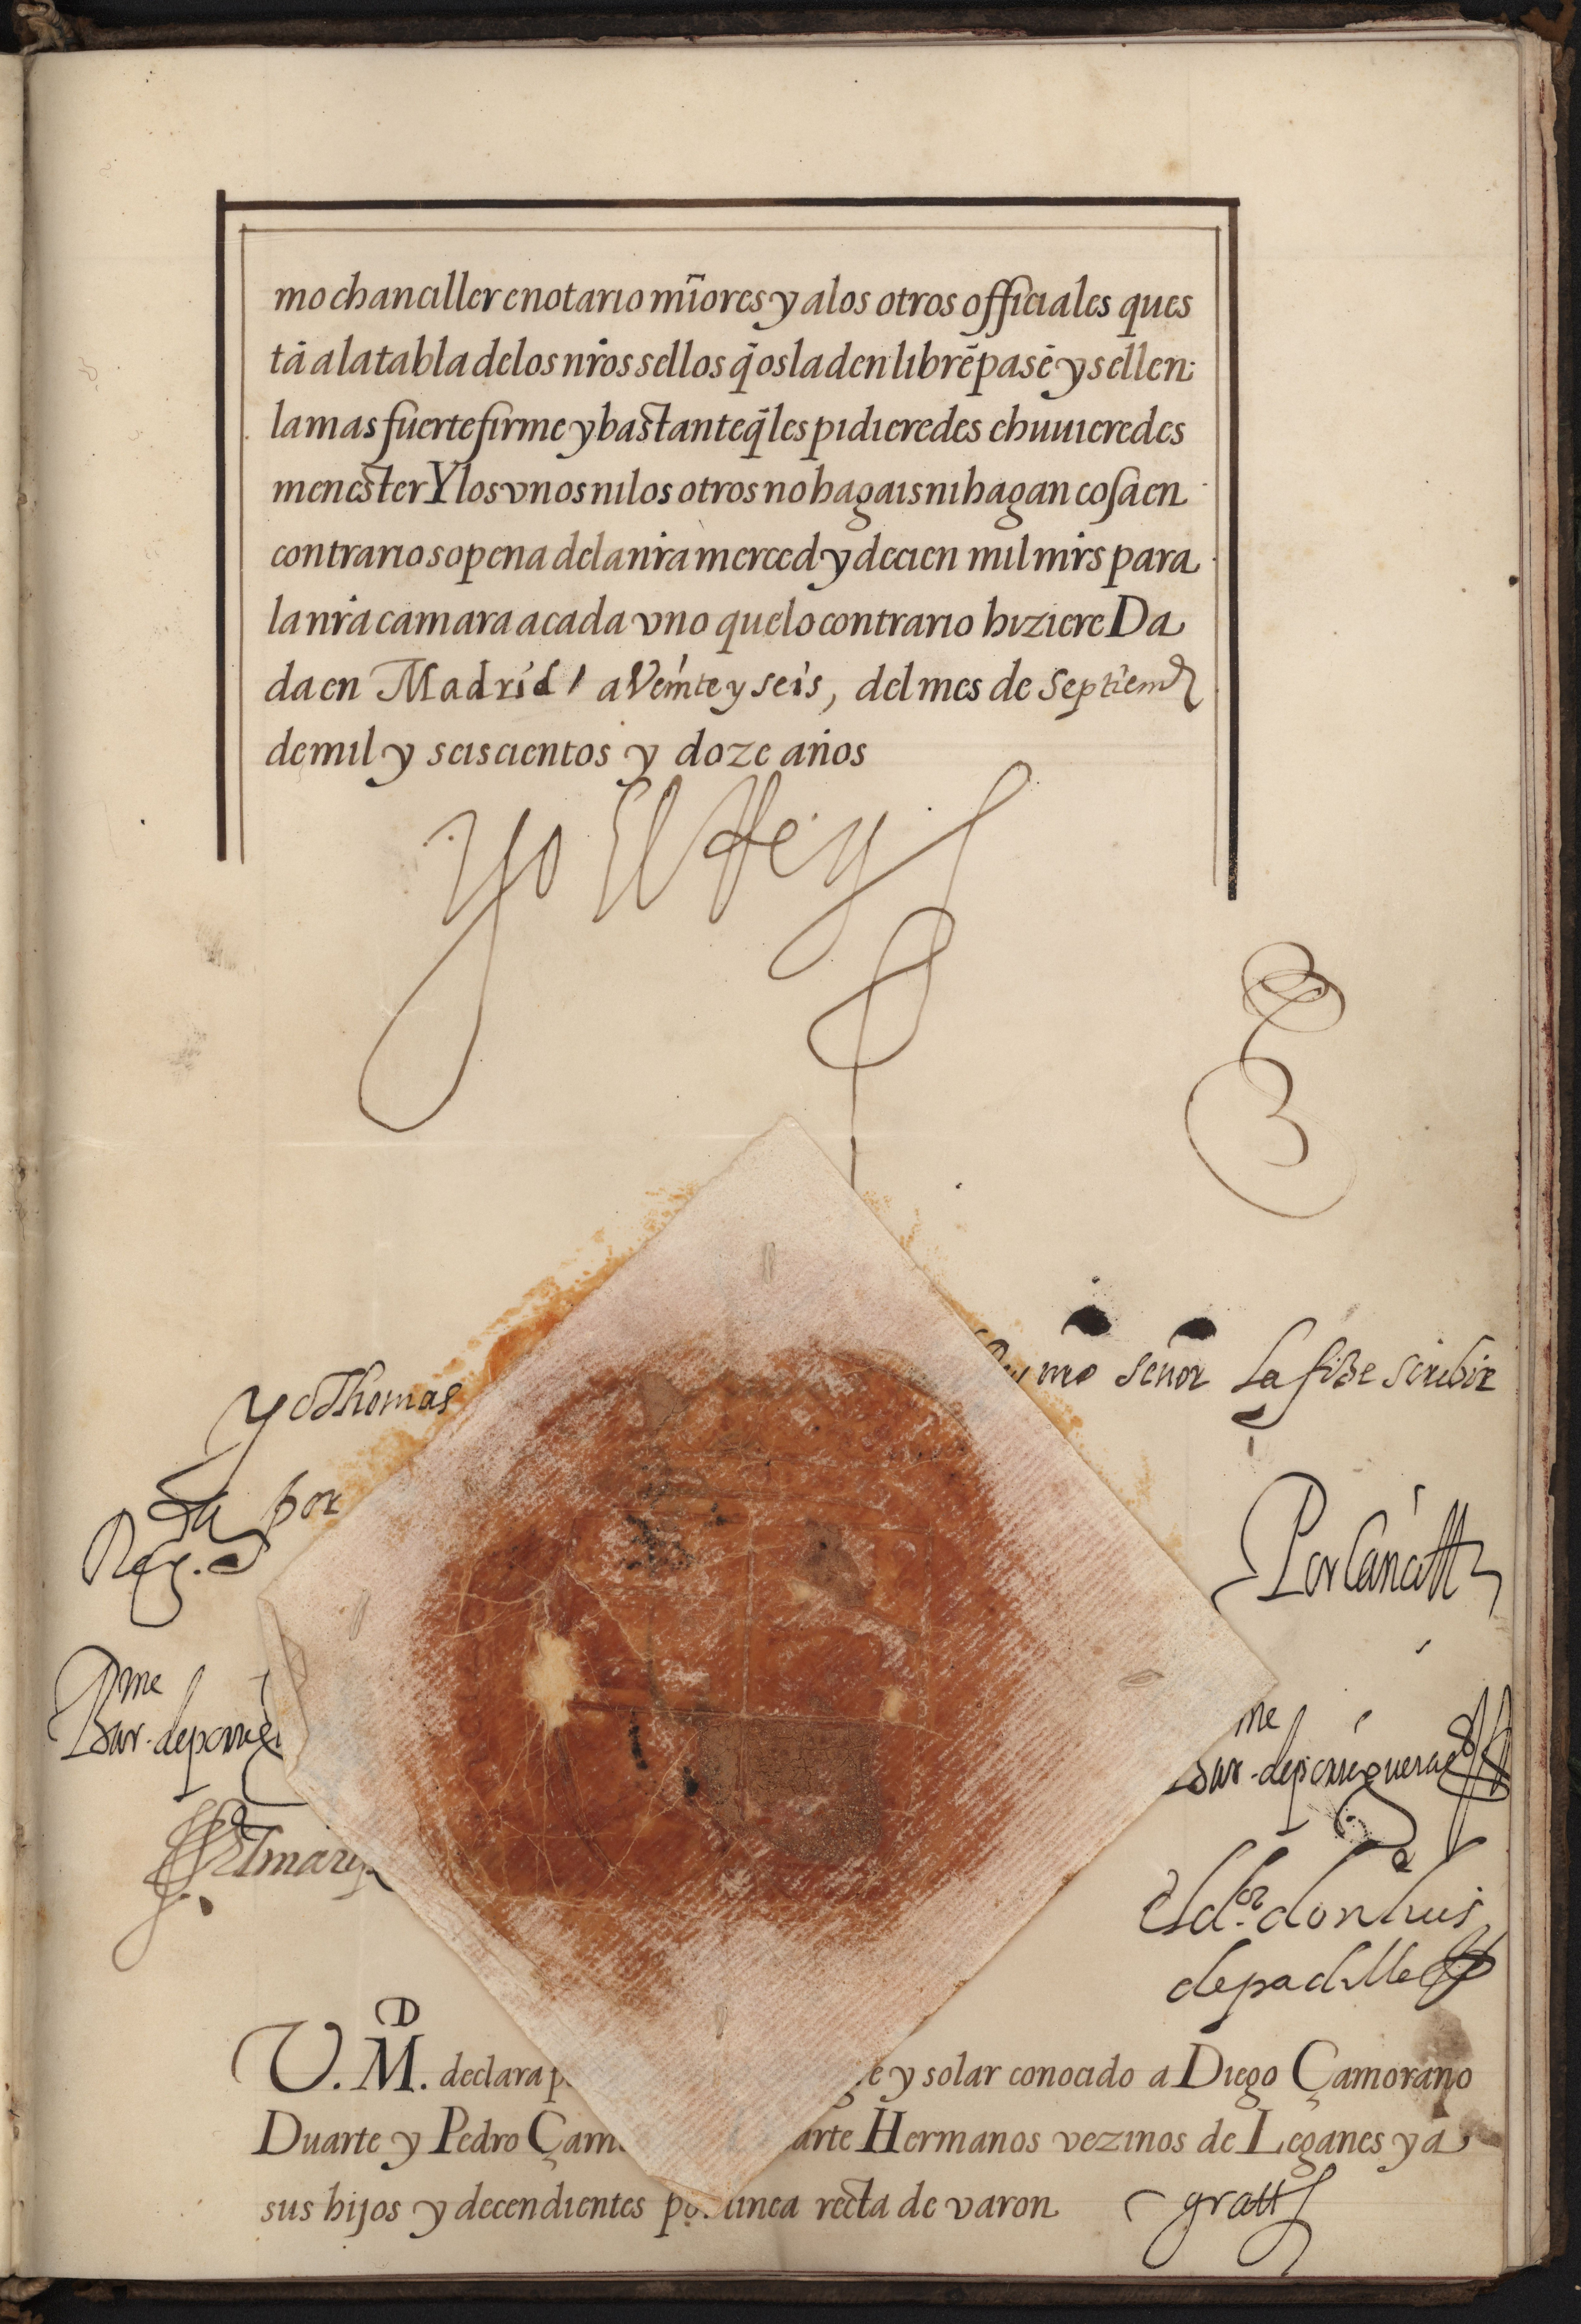 mo chanciller e notario mr̃ores y a los otros officiales ques
tā a la tabla de los nr̃os sellos q̃ os la den librē pasē y sellen
la mas fuerte firme y bastante q̃ les pidieredes e huuieredes
menester Y los vnos ni los otros no hagais ni hagan cosa en
contrario so pena de la nr̃a merced y de cien mil mr̃s para
la nr̃a camara a cada vno que lo contrario hiziere Da
da en Madrid a Veinte y seis, del mes de Septiem
de mil y seiscientos y doze años
Yo El Rey
Yo Thomas
nro señor la fize scribir
por
Reg.da
Por Canciller
Bar.me de porrigu
Bar.me de porriguera
El d.or don luis
de padilla
V. M.D declara p ge y solar conocido a Diego Çamorano
Duarte y Pedro Çam arte Hermanos vezinos de Leganes y a
sus hijos y decendientes por linea recta de varon